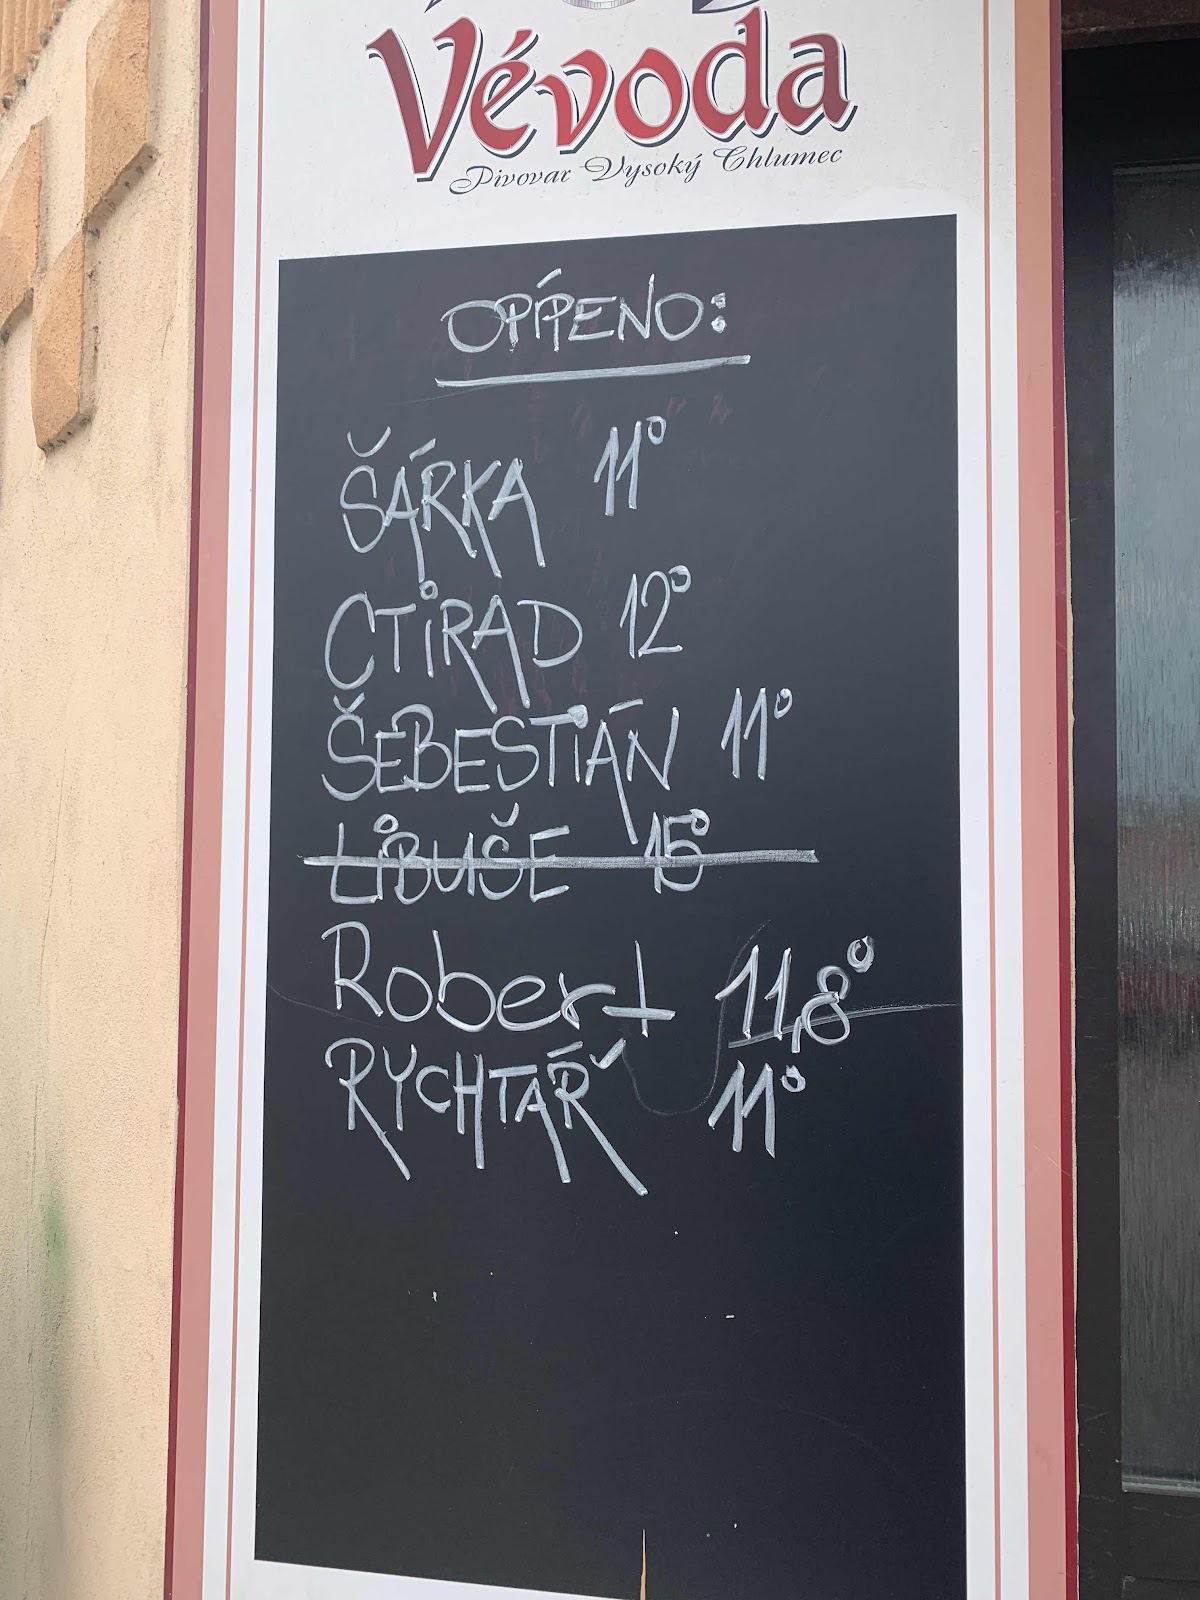 Vévoda
Pivovar Vysoký Chlumec
OPÍPENO:
ŠÁRKA 11°
CTIRAD 12°
ŠEBESTIÁN 11°
LIBUŠE 15°
Robert 11,8°
RYCHTÁŘ 11°